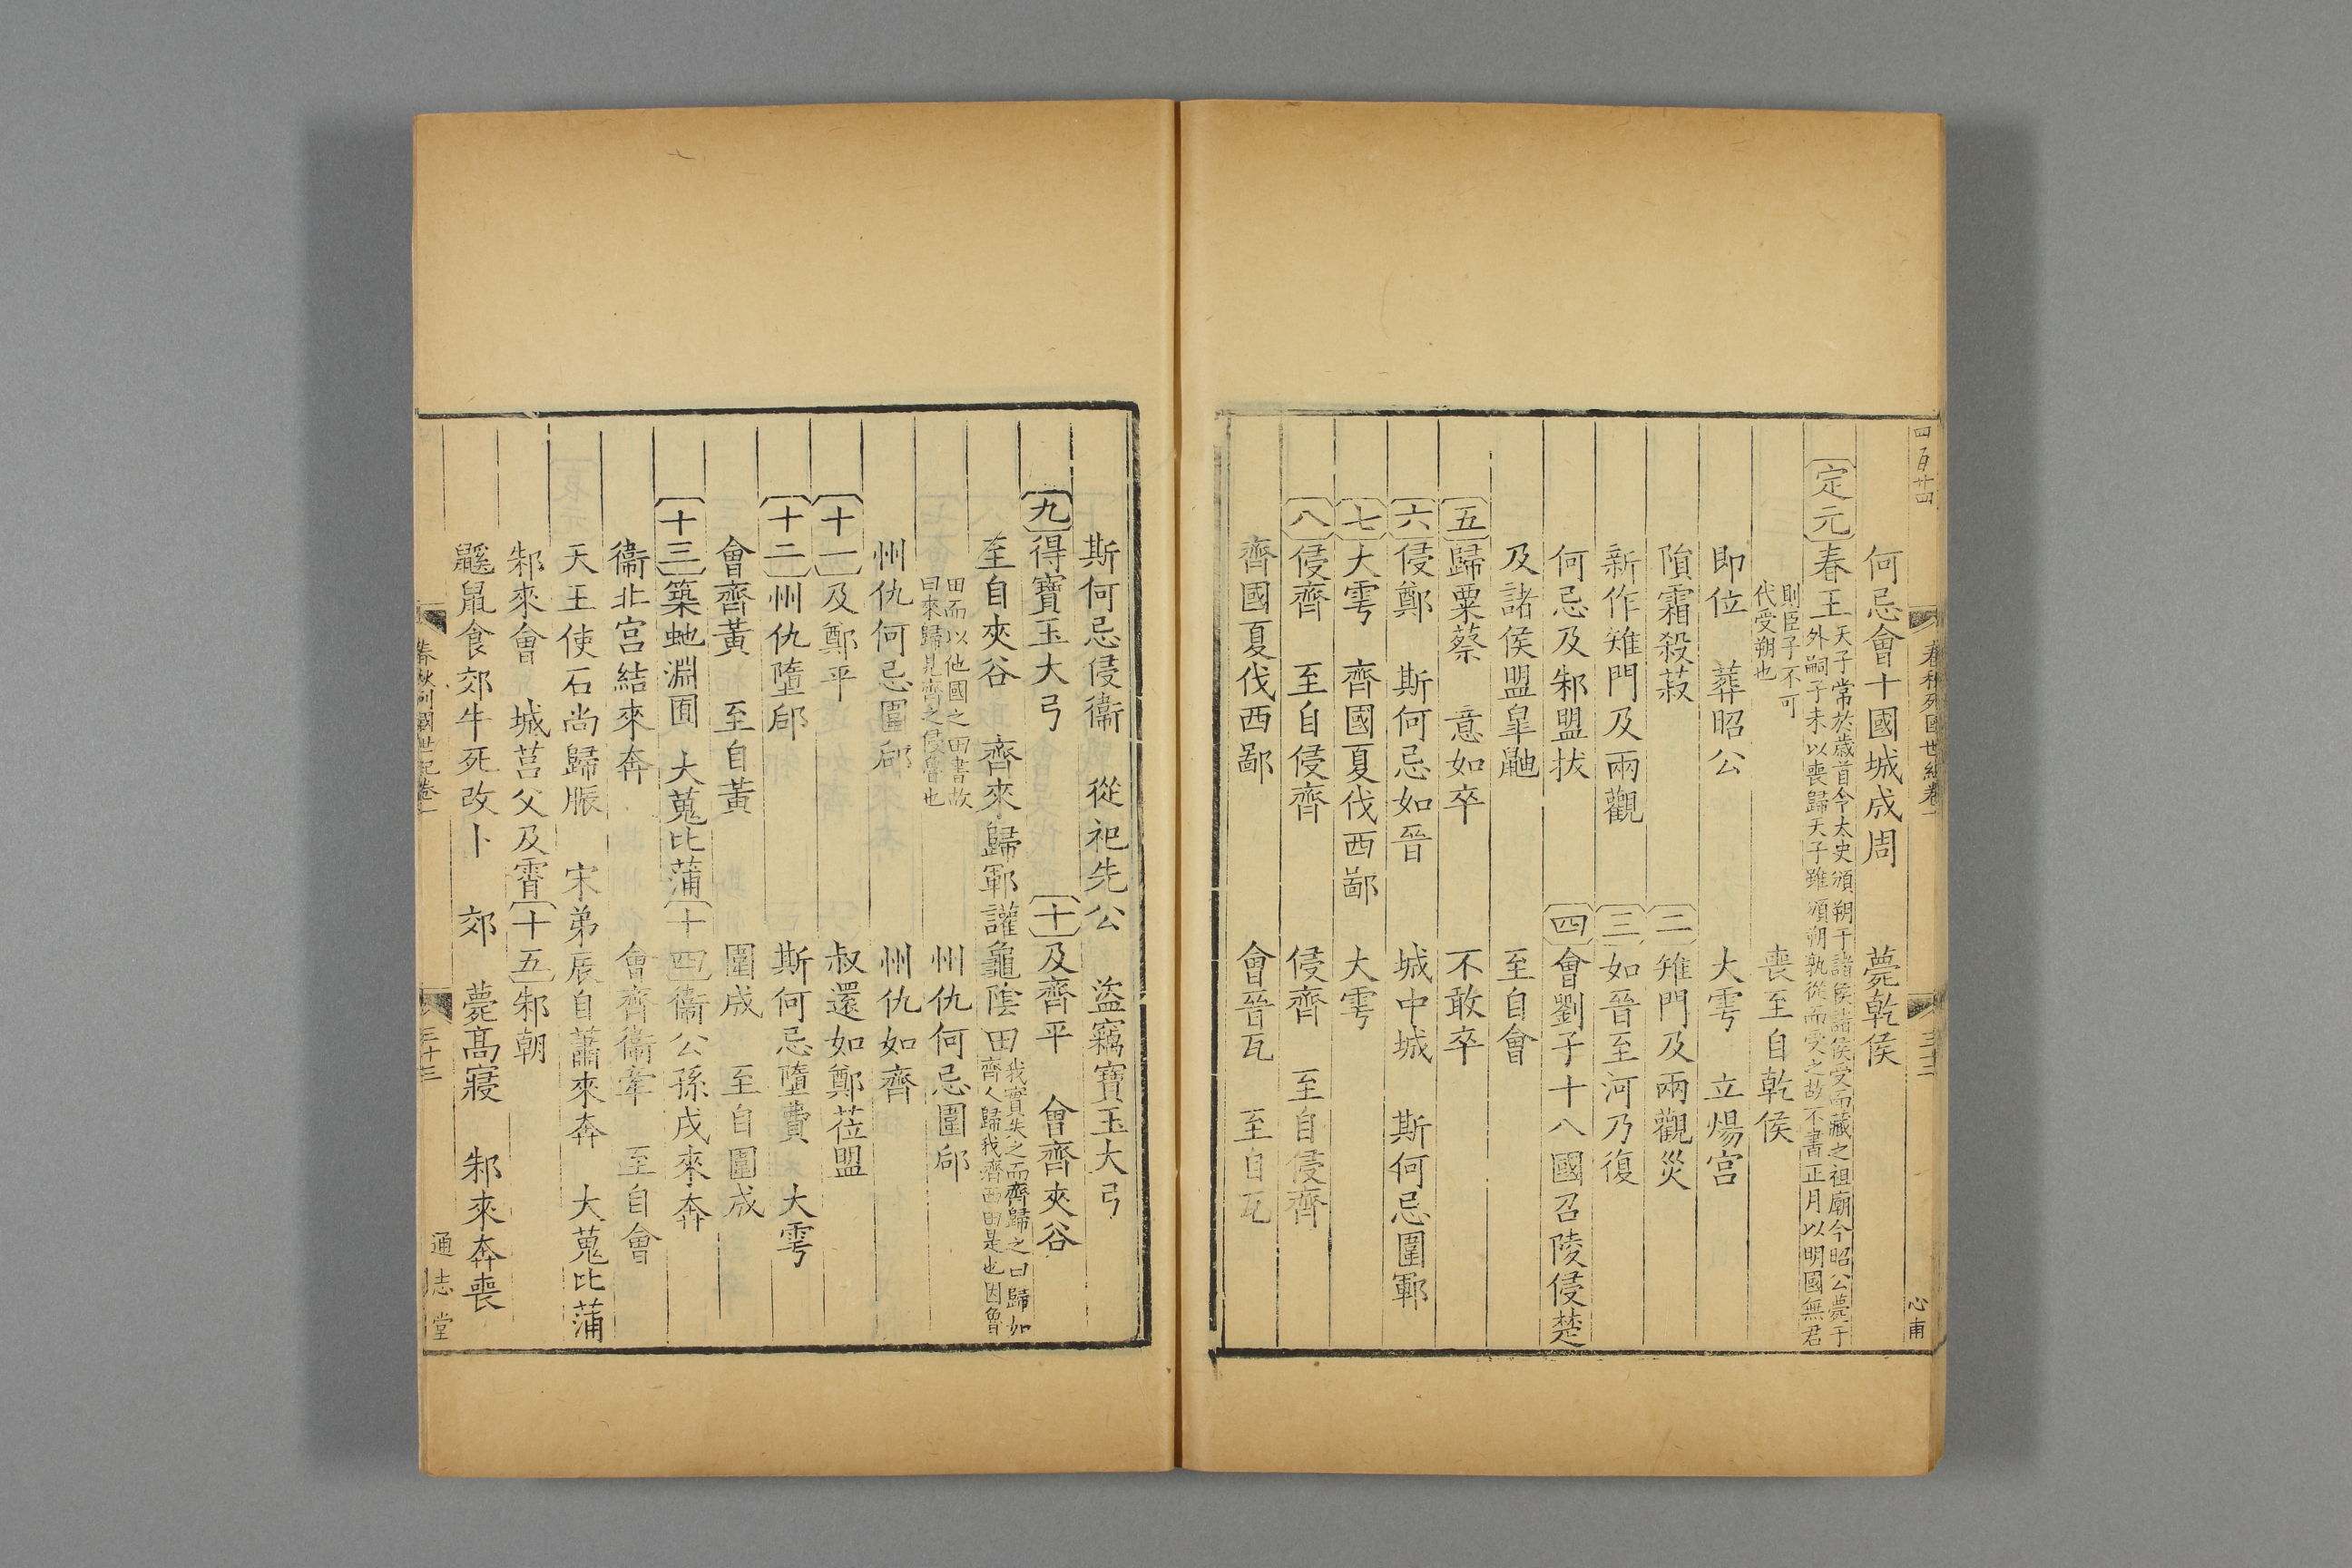 四百廿四
何忌會十國城成周　薨乾侯
定元　春王　天子常於歲首令太史頒朔于諸侯諸侯受而藏之祖廟今昭公薨于
外嗣子未以喪歸天子雖頒朔孰從而受之故不書正月以明國無君
則臣子不可
代受朔也
喪至自乾侯
即位　葬昭公　大雩　立煬宮
隕霜殺菽　二　雉門及兩觀災
新作雉門及兩觀　三　如晉至河乃復
何忌及邾盟拔　四　會劉子十八國召陵侵楚
及諸侯盟皐鼬　至自會
五　歸粟蔡　意如卒　不敢卒
六　侵鄭　斯何忌如晉　城中城　斯何忌圍鄆
七　大雩　齊國夏伐西鄙　大雩
八　侵齊　至自侵齊　侵齊　至自侵齊
齊國夏伐西鄙　會晉瓦　至自瓦
心甫
斯何忌侵衞　從祀先公　盜竊寶玉大弓
九　得寶玉大弓　十　及齊平　會齊夾谷
至自夾谷　齊來歸鄆讙龜陰田　我實失之而齊歸之曰歸如
齊人歸我濟西田是也因魯
田而以他國之田書故
曰來歸見齊之侵魯也
州仇何忌圍郈
州仇何忌圍郈　州仇如齊
十一　及鄭平　叔還如鄭莅盟
十二　州仇墮郈　斯何忌墮費　大雩
會齊黃　至自黃　圍成　至自圍成
十三　築虵淵囿　大蒐比蒲　十四　衞公孫戌來奔
衞北宮結來奔　會齊衞牽　至自會
天王使石尚歸脤　宋弟辰自蕭來奔　大蒐比蒲
邾來會　城莒父及霄　十五　邾朝
鼷鼠食郊牛死改卜　郊　薨高寢　邾來奔喪
春秋列國世紀卷一　三十三　通志堂